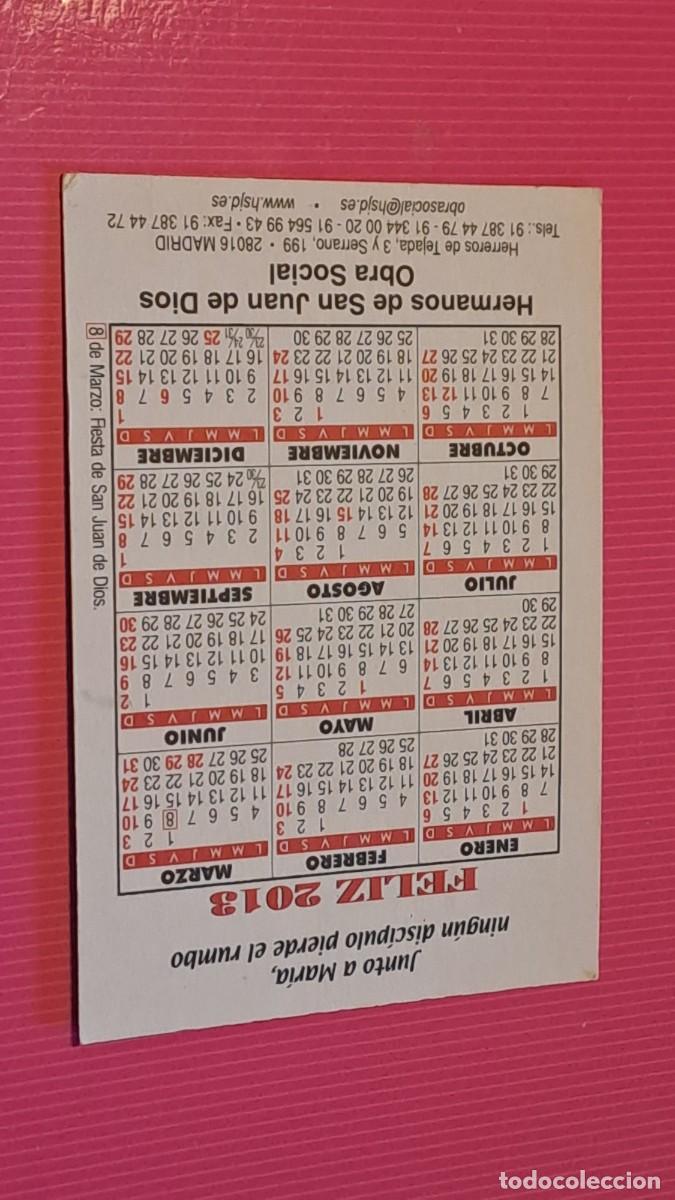 Junto a María,
ningún discípulo pierde el rumbo
FELIZ 2013
ENERO
L M M J V S D
1 2 3 4 5 6
7 8 9 10 11 12 13
14 15 16 17 18 19 20
21 22 23 24 25 26 27
28 29 30 31
FEBRERO
L M M J V S D
1 2 3
4 5 6 7 8 9 10
11 12 13 14 15 16 17
18 19 20 21 22 23 24
25 26 27 28
MARZO
L M M J V S D
1 2 3
4 5 6 7 8 9 10
11 12 13 14 15 16 17
18 19 20 21 22 23 24
25 26 27 28 29 30 31
ABRIL
L M M J V S D
1 2 3 4 5 6 7
8 9 10 11 12 13 14
15 16 17 18 19 20 21
22 23 24 25 26 27 28
29 30
MAYO
L M M J V S D
1 2 3 4 5
6 7 8 9 10 11 12
13 14 15 16 17 18 19
20 21 22 23 24 25 26
27 28 29 30 31
JUNIO
L M M J V S D
1 2
3 4 5 6 7 8 9
10 11 12 13 14 15 16
17 18 19 20 21 22 23
24 25 26 27 28 29 30
JULIO
L M M J V S D
1 2 3 4 5 6 7
8 9 10 11 12 13 14
15 16 17 18 19 20 21
22 23 24 25 26 27 28
29 30 31
AGOSTO
L M M J V S D
1 2 3 4
5 6 7 8 9 10 11
12 13 14 15 16 17 18
19 20 21 22 23 24 25
26 27 28 29 30 31
SEPTIEMBRE
L M M J V S D
1
2 3 4 5 6 7 8
9 10 11 12 13 14 15
16 17 18 19 20 21 22
23/30 24 25 26 27 28 29
OCTUBRE
L M M J V S D
1 2 3 4 5 6
7 8 9 10 11 12 13
14 15 16 17 18 19 20
21 22 23 24 25 26 27
28 29 30 31
NOVIEMBRE
L M M J V S D
1 2 3
4 5 6 7 8 9 10
11 12 13 14 15 16 17
18 19 20 21 22 23 24
25 26 27 28 29 30
DICIEMBRE
L M M J V S D
1
2 3 4 5 6 7 8
9 10 11 12 13 14 15
16 17 18 19 20 21 22
23/30 24/31 25 26 27 28 29
8 de Marzo: Fiesta de San Juan de Dios.
Hermanos de San Juan de Dios
Obra Social
Herreros de Tejada, 3 y Serrano, 199 • 28016 MADRID
Tels.: 91 387 44 79 - 91 344 00 20 - 91 564 99 43 • Fax: 91 387 44 72
obrasocial@hsjd.es • www.hsjd.es
todocoleccion